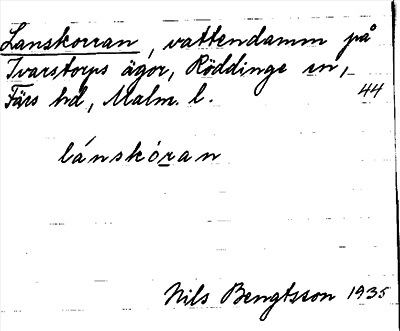 Lanskorran, vattendamm på
Ivarstorps ägor, Röddinge sn,
Färs hd, Malm. l. 44
lánskóran
Nils Bengtsson 1935